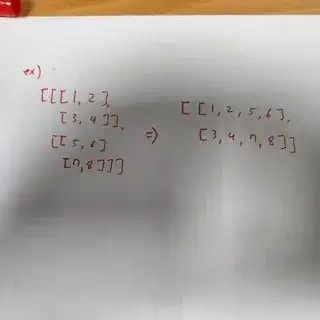 ex)
[[[1, 2],
[3, 4]],
[[5, 6]
[7, 8]]]
=>
[[1, 2, 5, 6],
[3, 4, 7, 8]]